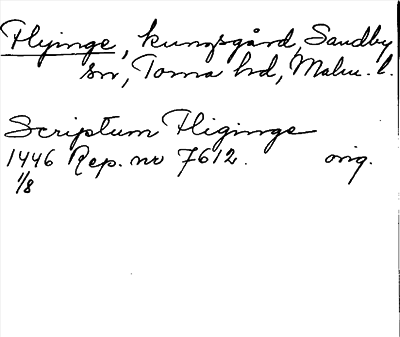 Flyinge, kungsgård, Sandby
sn, Torna hd, Malm. l.
Scriptum Fliginge
1446 Rep. nr 7612. orig.
1/8